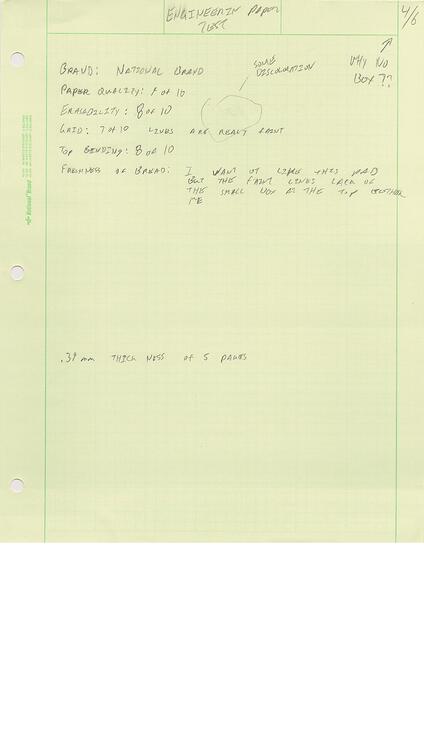 ENGINEERIN PAPER
TEST
4/6
SOME
DISCOLORATION
WHY NO
BOX ??
BRAND: NATIONAL BRAND
PAPER QUALITY: 7 of 10
ERASABILITY: 8 of 10
GRID: 7 of 10 LINES ARE REALY FAINT
TOP BINDING: 8 of 10
FRESHNESS OF BREAD: I WANT OT LIKE THIS PAD
BUT THE FAINT LINES LACK OF
THE SMALL BOX AT THE TOP BOTHER
ME
National Brand
.39 mm THICK NESS of 5 PAGES